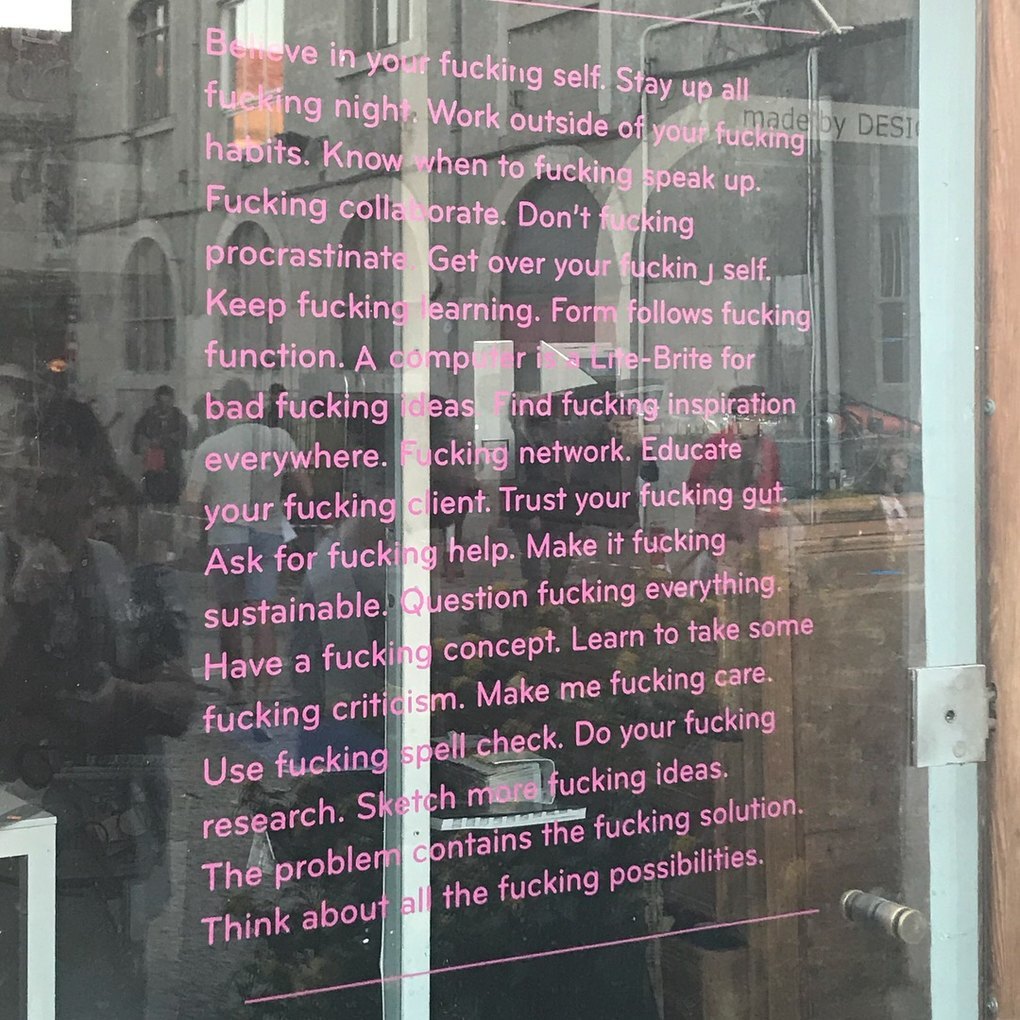 Believe in your fucking self. Stay up all
fucking night. Work outside of your fucking
habits. Know when to fucking speak up.
Fucking collaborate. Don't fucking
procrastinate. Get over your fucking self.
Keep fucking learning. Form follows fucking
function. A computer is a Lite-Brite for
bad fucking ideas. Find fucking inspiration
everywhere. Fucking network. Educate
your fucking client. Trust your fucking gut.
Ask for fucking help. Make it fucking
sustainable. Question fucking everything.
Have a fucking concept. Learn to take some
fucking criticism. Make me fucking care.
Use fucking spell check. Do your fucking
research. Sketch more fucking ideas.
The problem contains the fucking solution.
Think about all the fucking possibilities.
made by